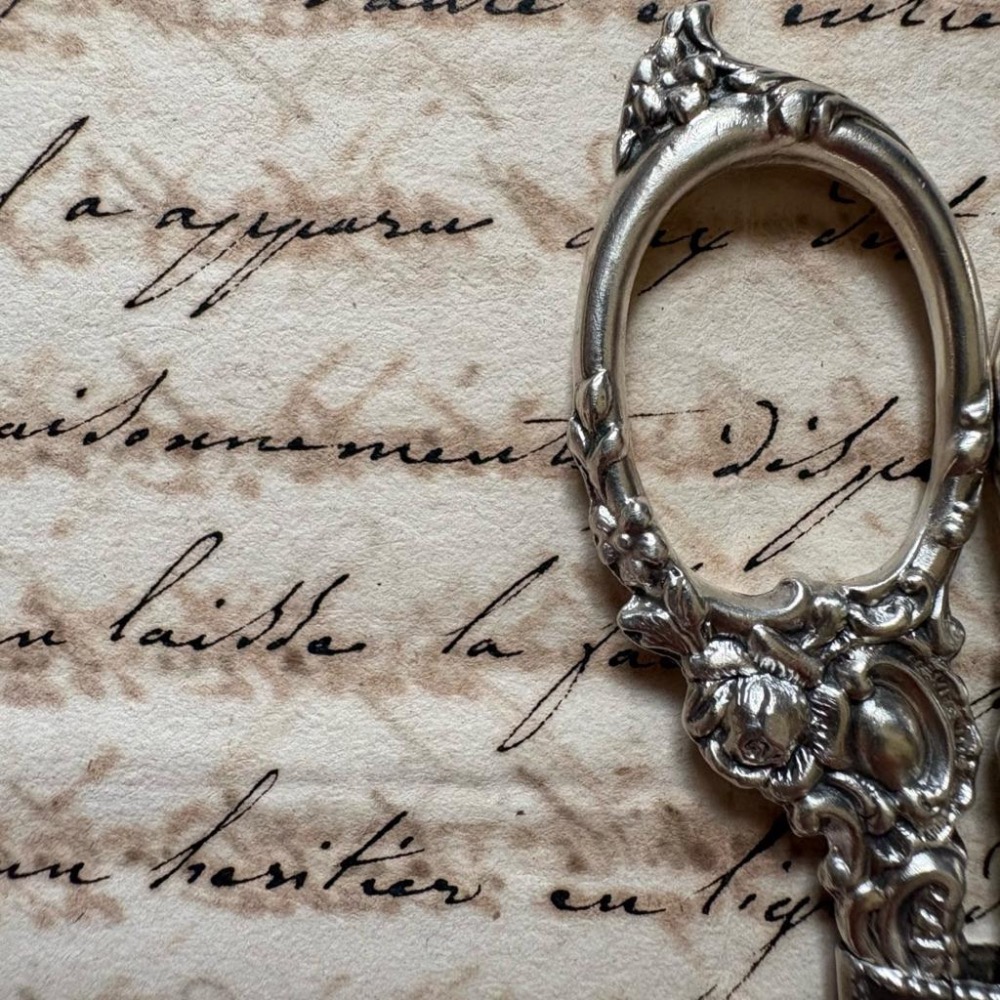 en
a apparu aux
aisonnements disp
n laisse la
un heritier en lig